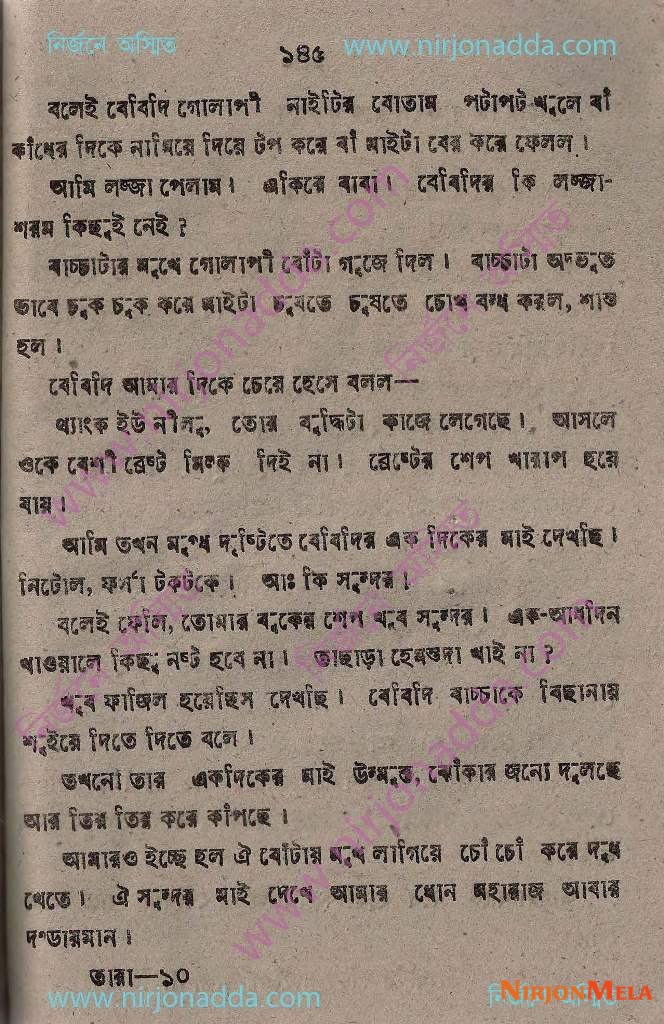 নির্জনে অস্মিত
১৪৫
www.nirjonadda.com
বলেই বেবিদি গোলাপী নাইটির বোতাম পটাপট খুলে বাঁ
কাঁধের দিকে নামিয়ে দিয়ে টপ করে বাঁ মাইটা বের করে ফেলল।
আমি লজ্জা পেলাম। একিরে বাবা। বেবিদির কি লজ্জা-
শরম কিছুই নেই ?
বাচ্চাটার মুখে গোলাপী বোঁটা গুজে দিল। বাচ্চাটা অদ্ভুত
ভাবে চুক চুক করে মাইটা চুষতে চুষতে চোখ বন্ধ করল, শান্ত
হল।
বেবিদি আমার দিকে চেয়ে হেসে বলল—
থ্যাংক ইউ নীলু, তোর বুদ্ধিটা কাজে লেগেছে। আসলে
ওকে বেশী ব্রেস্ট মিল্ক দিই না। ব্রেস্টের শেপ খারাপ হয়ে
যায়।
আমি তখন মুগ্ধ দৃষ্টিতে বেবিদির এক দিকের মাই দেখছি।
নিটোল, ফর্সা টকটকে। আঃ কি সুন্দর!
বলেই ফেলি, তোমার বুকের শেপ খুব সুন্দর। এক-আধদিন
খাওয়ালে কিছু নষ্ট হবে না। তাছাড়া হেমন্তদা খাই না ?
খুব ফাজিল হয়েছিস দেখছি। বেবিদি বাচ্চাকে বিছানায়
শুইয়ে দিতে দিতে বলে।
তখনো তার একদিকের মাই উন্মুক্ত, ঝোঁকার জন্যে দুলছে
আর তির তির করে কাঁপছে।
আমারও ইচ্ছে হল ঐ বোঁটায় মুখ লাগিয়ে চোঁ চোঁ করে দুধ
খেতে। ঐ সুন্দর মাই দেখে আমার ধোন মহারাজ আবার
দণ্ডায়মান।
তারা—১০
www.nirjonadda.com
NIRJONMELA